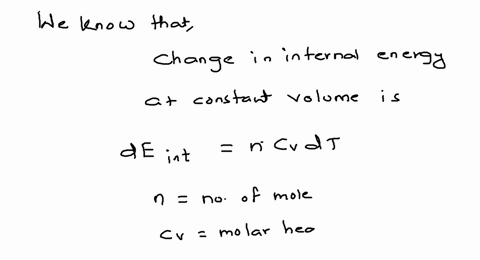 We know that,
change in internal energy
at constant volume is
dE int = n Cv dT
n = no. of mole
Cv = molar hea